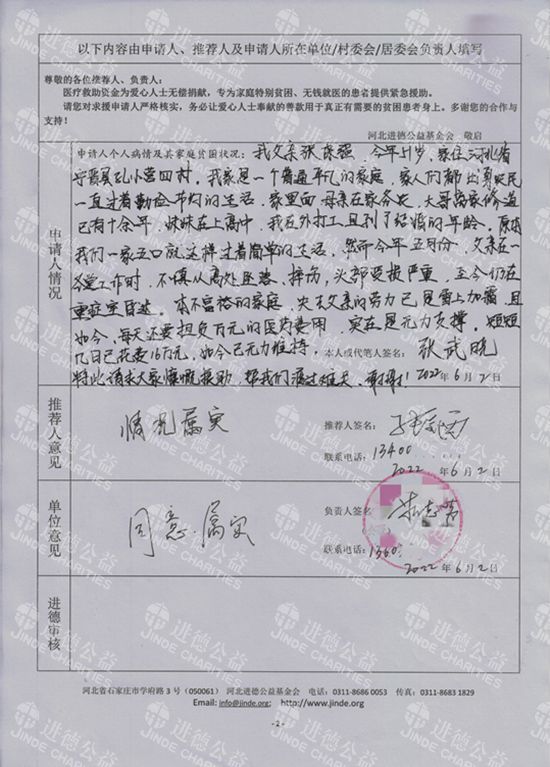 以下内容由申请人、推荐人及申请人所在单位/村委会/居委会负责人填写
尊敬的各位推荐人、负责人：
医疗救助资金为爱心人士无偿捐献，专为家庭特别贫困、无钱就医的患者提供紧急援助。
请您对求援申请人严格核实，务必让爱心人士奉献的善款用于真正有需要的贫困患者身上。多谢您的合作与
支持！
河北进德公益基金会 敬启
申请人情况
申请人个人病情及其家庭贫困状况：我父亲张保强，今年51岁，家住河北省
宁晋县孔小营四村，我家是一个普通平凡的家庭，家人们都
一直过着勤俭节约的生活，家里面母亲在家务农，大哥离家修道
已有十余年，妹妹在上高中，我在外打工且到了结婚的年龄。原本
我们一家五口就这样过着简单的生活，然而今年五月份，父亲在一
工作时，不慎从高处坠落，摔伤，头部受损严重，至今仍在
重症室昏迷。本不富裕的家庭，失去父亲的劳力已是雪上加霜，且
如今，每天还要担负万元的医药费用，实在是无力支撑，短短
几日已花费16万元，如今已无力维持，本人或代笔人签名：张武晓
特此请求大家慷慨援助，帮我们渡过难关，谢谢！2022年6月2日
推荐人意见
情况属实
推荐人签名：
联系电话：13400
2022年6月2日
单位意见
同意.属实
负责人签名
联系电话：1360
2022年6月2日
进德审核
河北省石家庄市学府路 3 号（050061） 河北进德公益基金会 电话：0311-8686 0053 传真：0311-8683 1829
Email: info@jinde.org; http://www.jinde.org
-2-
进德公益
JINDE CHARITIES